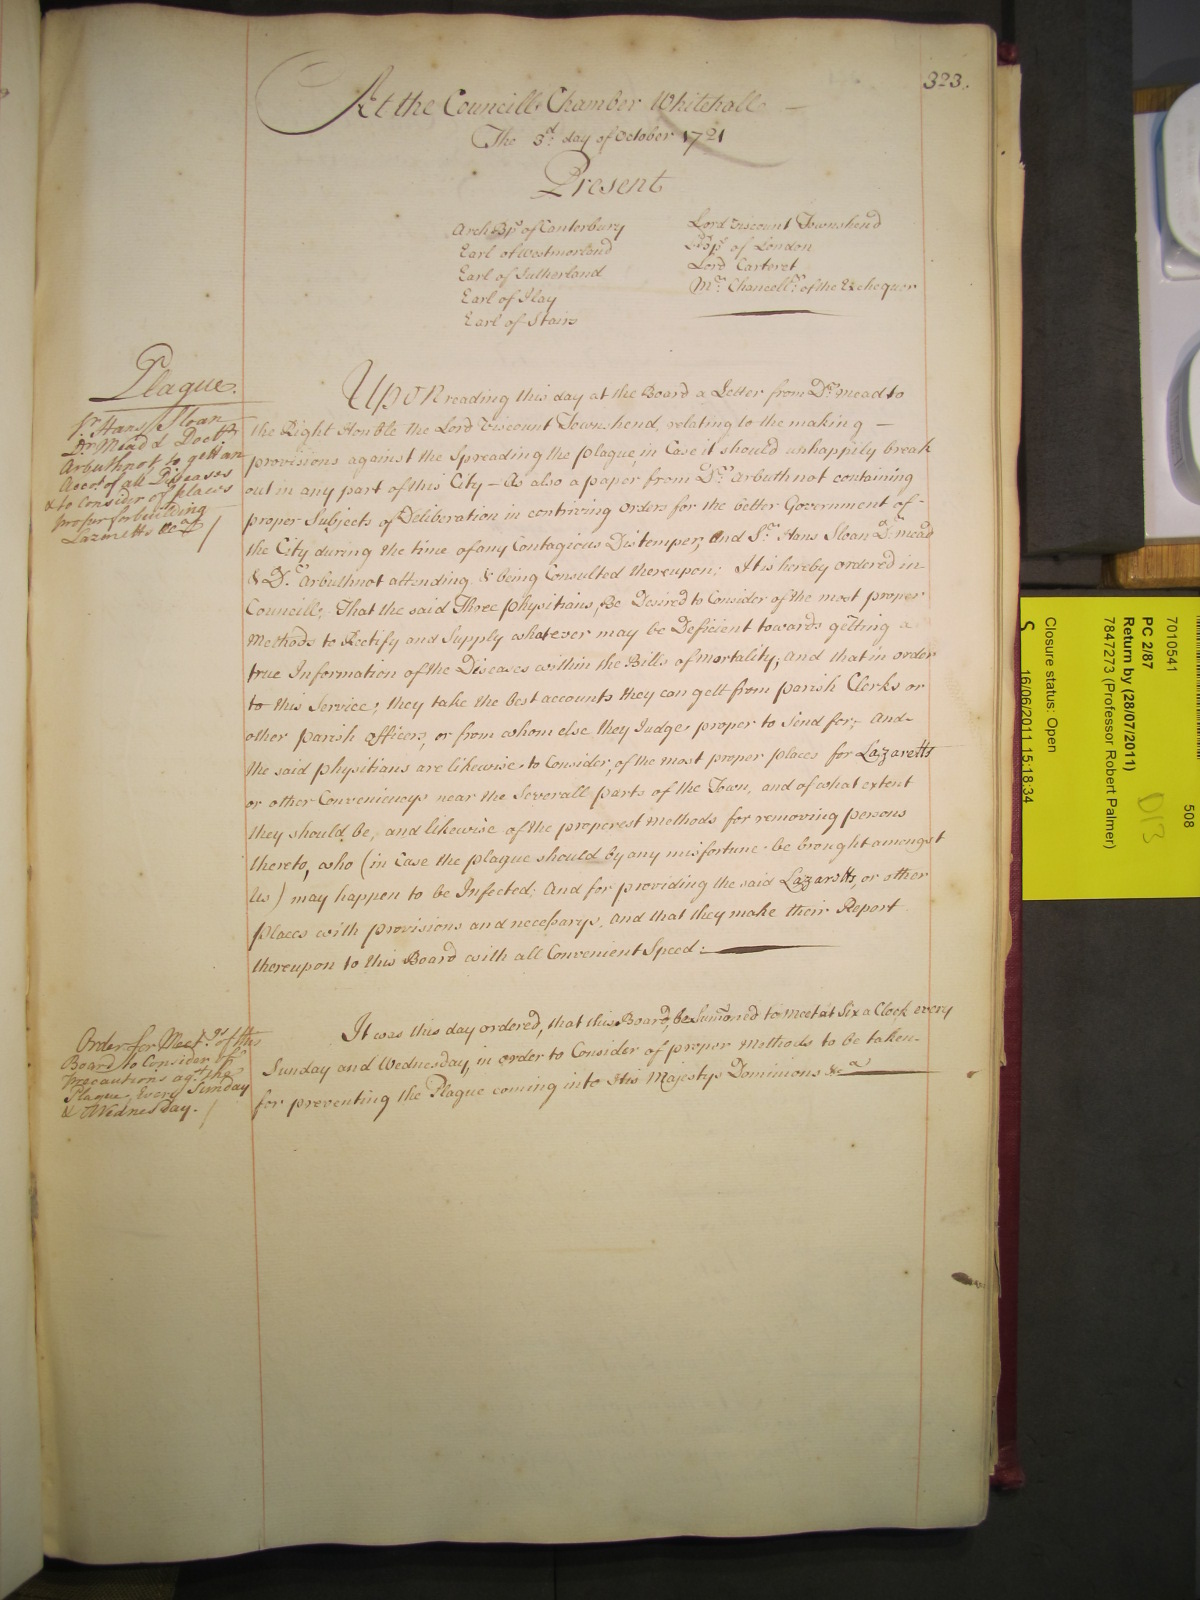 323.
At the Councill Chamber Whitehall
The 3d. day of October 1721
Present
Arch Bp. of Canterbury
Earl of Westmorland
Earl of Sutherland
Earl of Ilay
Earl of Stairs
Lord Viscount Townshend
Ld. Bp. of London
Lord Carteret
Mr. Chancellr. of the Exchequer
Plague.
Sr. Hans Sloan
Dr. Mead & Doctr.
Arbuthnot, to gett an
Acct. of all Diseases
& to consider of places
proper for building
Lazaretts &ca.
Upon reading this day at the Board a Letter from Dr. Mead to
the Right Honble the Lord Viscount Townshend, relating to the making
provisions against the Spreading the plague, in Case it should unhappily break
out in any part of this City - As also a paper from Dr. Arbuthnot containing
proper Subjects of Deliberation in contriving orders for the better Government of
the City during the time of any Contagious Distemper, and Sr. Hans Sloan Dr. Mead
& Dr. Arbuthnot attending & being Consulted thereupon; It is hereby ordered in
Councill, That the said Three physitians, Be Desired to Consider of the most proper
Methods to Rectify and Supply whatever may be Deficient towards getting a
true Information of the Diseases within the Bills of Mortality; and that in order
to this Service, they take the best accounts they can gett from parish Clerks or
other parish officers, or from whom else they Judge proper to Send for, And
the said physitians are likewise to Consider, of the most proper places for Lazaretts
or other Conveniencys near the Severall parts of the Town, and of what extent
they should be, and likewise of the properest Methods for removing persons
thereto, who (in Case the plague should by any misfortune be brought amongst
Us) may happen to be Infected; And for providing the said Lazaretts, or other
places with provisions and necessarys, And that they make their Report
thereupon to this Board with all Convenient Speed:
Order for Meetgs. of this
Board to Consider of
precautions agt. the
Plague, Every Sunday
& Wednesday.
It was this day ordered, that this Board, be Sumoned to meet at Six a Clock every
Sunday and Wednesday, in order to Consider of proper Methods to be taken
for preventing the Plague coming into His Majestys Dominions &ca
508
7010541
PC 2/87
Return by (28/07/2011)
7847273 (Professor Robert Palmer)
D13
Closure status: Open
S
16/06/2011 15:18:34